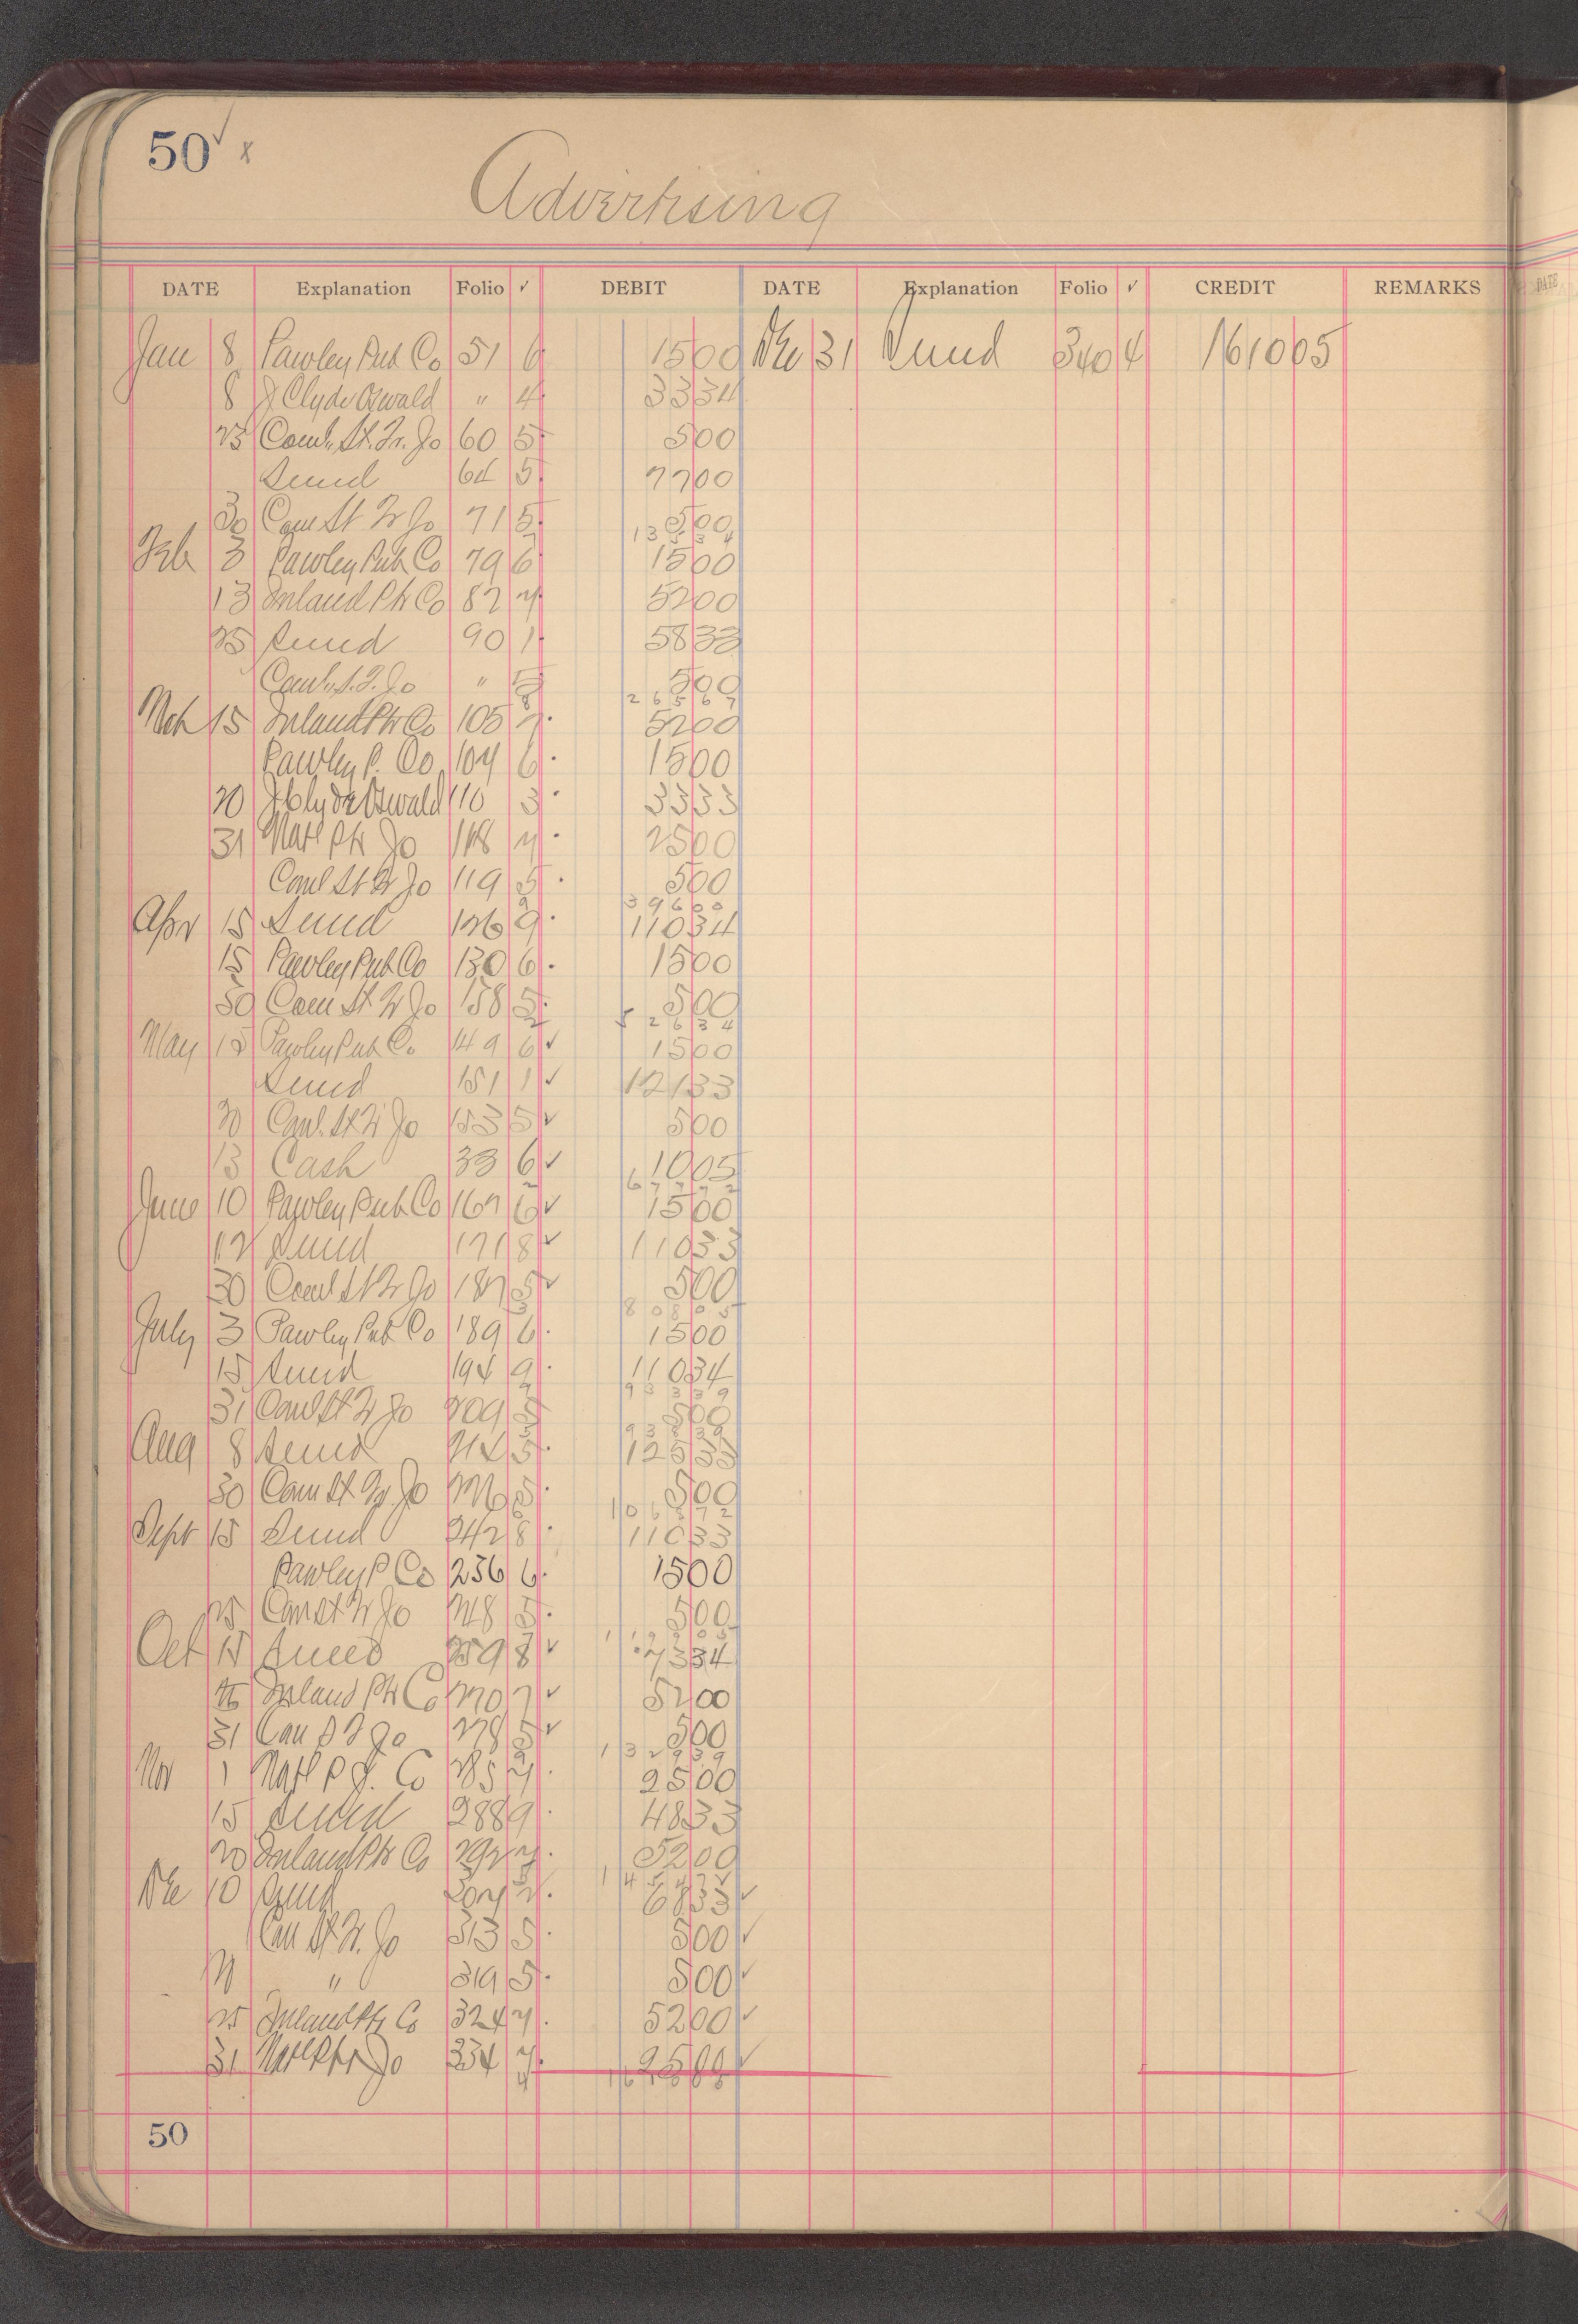 50 ✓ x
Advertising
DATE Explanation Folio ✓ DEBIT DATE Explanation Folio ✓ CREDIT REMARKS
Jan 8 Pawley Pub Co 51 6 1500 Dec 31 Sund 340 4 161005
8 J Clyde Oswald " 4 3334
25 Coml. St. Tr. Jo 60 5 500
Sund 64 5 7700
30 Com St Tr Jo 71 5 500
13534
Feb 3 Pawley Pub Co 79 6 1500
13 Inland Ptr Co 82 7 5200
25 Sund 90 1 5833
Coml. S. T. Jo " 5 500
26567
Mch 15 Inland Ptr Co 105 7 5200
Pawley P. Co 104 6 1500
20 J Clyde Oswald 110 3 3333
31 Natl Ptr Jo 118 7 2500
Coml St Tr Jo 119 5 500
39600
Apr 15 Sund 126 9 11034
15 Pawley Pub Co 130 6 1500
30 Com St Tr Jo 138 5 500
52634
May 15 Pawley Pub Co 149 6 ✓ 1500
Sund 151 1 ✓ 12133
20 Coml. St Tr Jo 153 5 ✓ 500
13 Cash 33 6 ✓ 1005
67772
June 10 Pawley Pub Co 167 6 ✓ 1500
12 Sund 171 8 ✓ 11033
30 Coml St Tr Jo 187 5 ✓ 500
80805
July 3 Pawley Pub Co 189 6 1500
15 Sund 194 9 11034
93339
31 Coml St Tr Jo 209 5 500
93839
Aug 8 Sund 214 5 12533
30 Com St Tr Jo 226 5 500
106872
Sept 15 Sund 242 8 11033
Pawley P Co 236 6 1500
25 Com St Tr Jo 248 5 500
119905
Oct 15 Sund 259 8 ✓ 7334
Inland Ptr Co 270 7 ✓ 5200
31 Com S T Jo 278 5 ✓ 500
132939
Nov 1 Natl P J. Co 285 7 2500
15 Sund 288 9 4833
20 Inland Ptr Co 292 7 5200
145472
Dec 10 Sund 307 7 6833 ✓
Com St Tr. Jo 313 5 500 ✓
" 319 5 500 ✓
25 Inland Ptr Co 324 7 5200 ✓
31 Natl Ptr Jo 334 7 2500 ✓
50